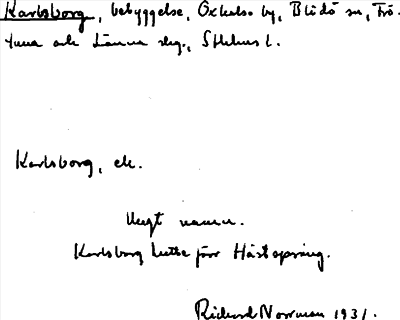 Karlsborg, bebyggelse, Oxhalsö by, Blidö sn, Frö-
tuna och Länna skg., Sthlms l.
Karlsborg, ek.
Ungt namn.
Karlsborg hette förr Hästsprång.
Richard Norrman 1931.